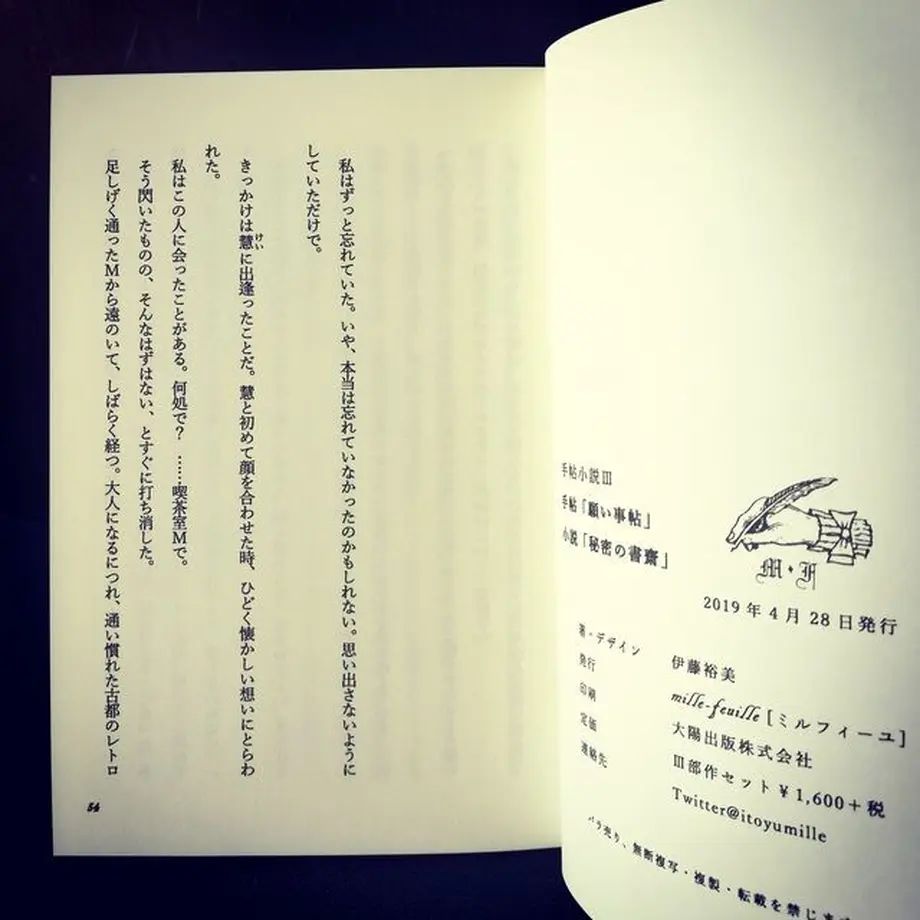 私はずっと忘れていた。いや、本当は忘れていなかったのかもしれない。思い出さないように
していただけで。
きっかけは慧に出逢ったことだ。慧と初めて顔を合わせた時、ひどく懐かしい想いにとらわ
けい
れた。
私はこの人に会ったことがある。何処で？　……喫茶室Ｍで。
そう閃いたものの、そんなはずはない、とすぐに打ち消した。
足しげく通ったＭから遠のいて、しばらく経つ。大人になるにつれ、通い慣れた古都のレトロ
54
手帖小説Ⅲ
手帖「願い事帖」
小説「秘密の書齋」
M・F
2019年4月28日発行
著・デザイン 伊藤裕美
発行 mille-feuille［ミルフィーユ］
印刷 大陽出版株式会社
定価 Ⅲ部作セット¥1,600＋税
連絡先 Twitter@itoyumille
バラ売り、無断複写・複製・転載を禁じま